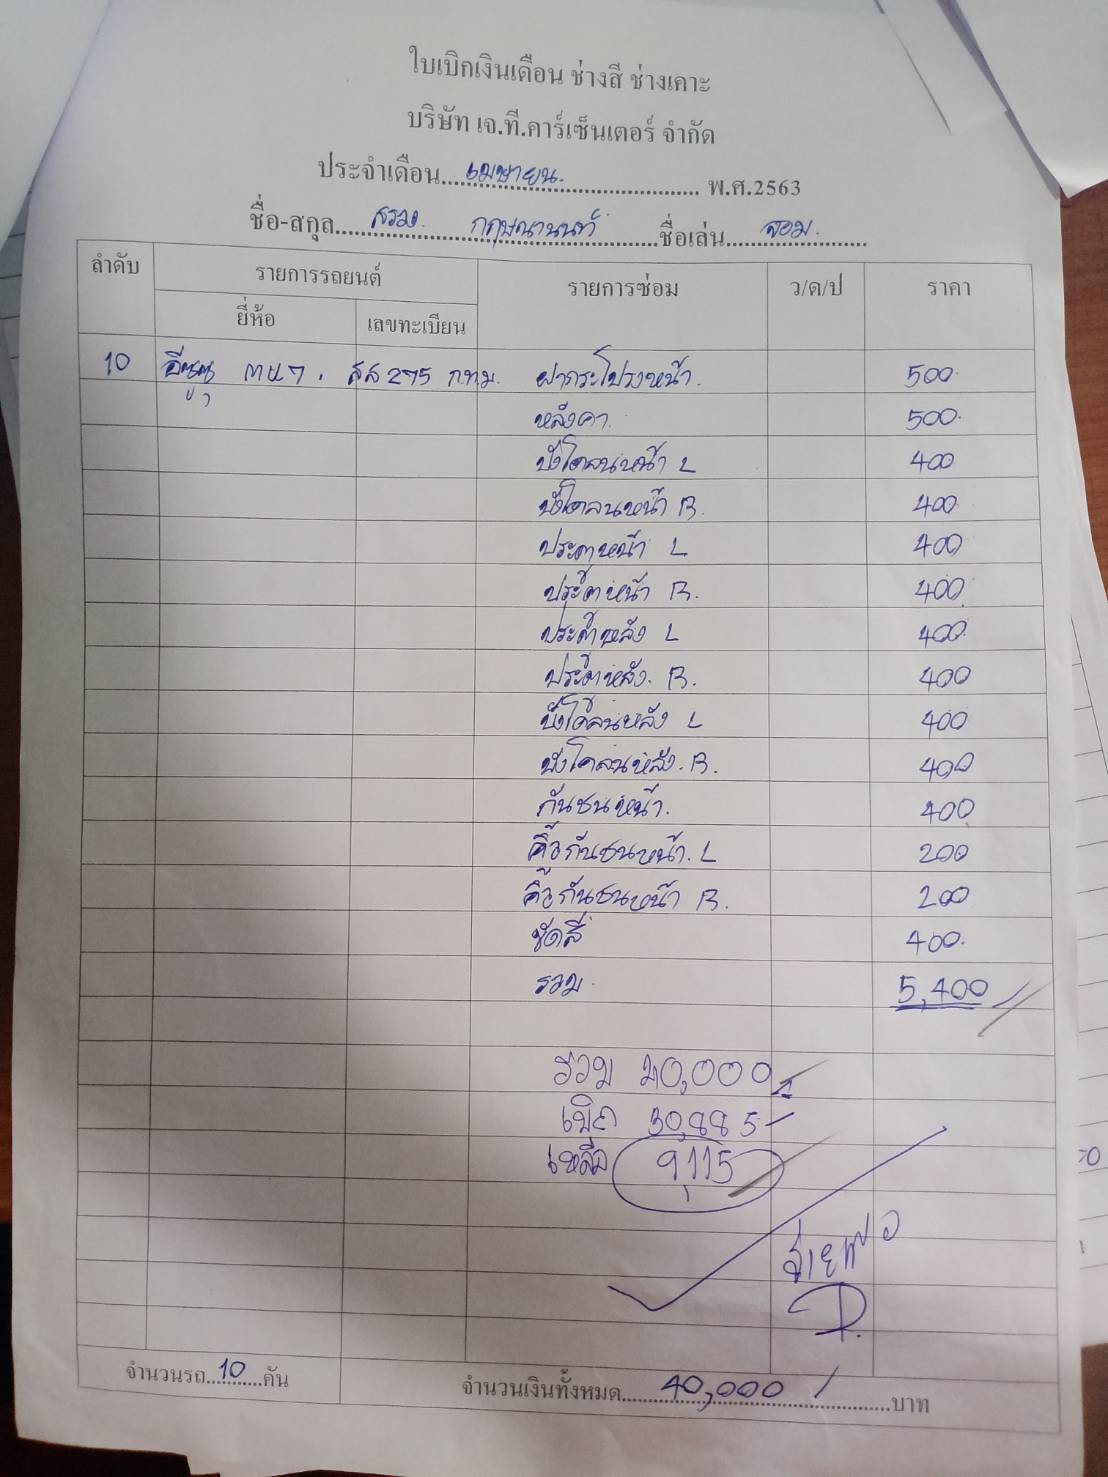 ใบเบิกเงินเดือน ช่างสี ช่างเคาะ
บริษัท เจ.ที.คาร์เซ็นเตอร์ จำกัด
ประจำเดือน....เมษายน.................... พ.ศ.2563
ชื่อ-สกุล..... กฤษณานนท์ ........ชื่อเล่น..........
ลำดับ รายการรถยนต์ รายการซ่อม ว/ด/ป ราคา
ยี่ห้อ เลขทะเบียน
10 อีซูซุ 275 กทม. ฝากระโปรงหน้า. 500
หลังคา. 500
บังโคลนหน้า L 400
บังโคลนหน้า R. 400
ประตูหน้า L 400
ประตูหน้า R. 400
ประตูหลัง L 400
ประตูหลัง. R. 400
บังโคลนหลัง L 400
บังโคลนหลัง. R. 400
กันชนหน้า. 400
คิ้วกันชนหน้า. L 200
คิ้วกันชนหน้า R. 200
ขัดสี 400
รวม 5,400
รวม 40,000
เบิก 30,885
เหลือ 9,115
จำนวนรถ...10...คัน จำนวนเงินทั้งหมด......40,000......บาท